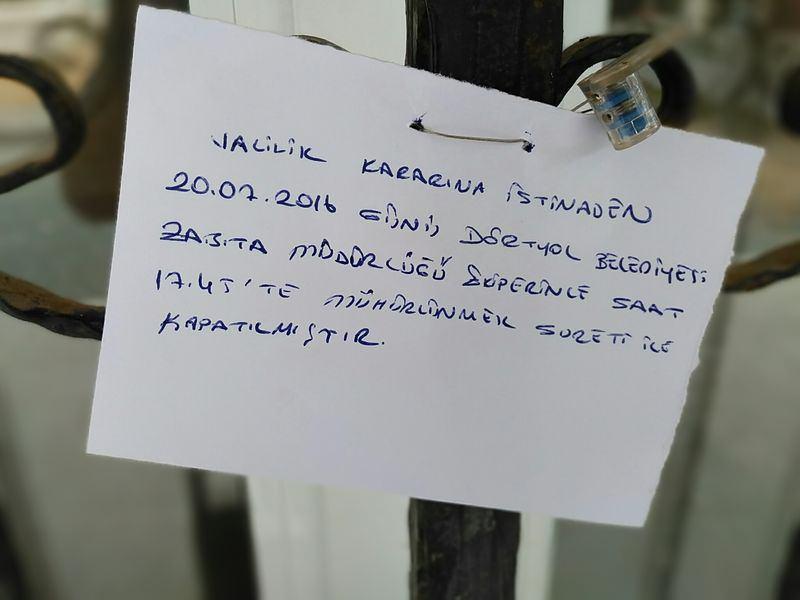 VALİLİK KARARINA İSTİNADEN
20.07.2016 GÜNÜ DÖRTYOL BELEDİYESİ
ZABITA MÜDÜRLÜĞÜ EKİPERİNCE SAAT
17.45'TE MÜHÜRLÜNMEK SURETİ İLE
KAPATILMIŞTIR.